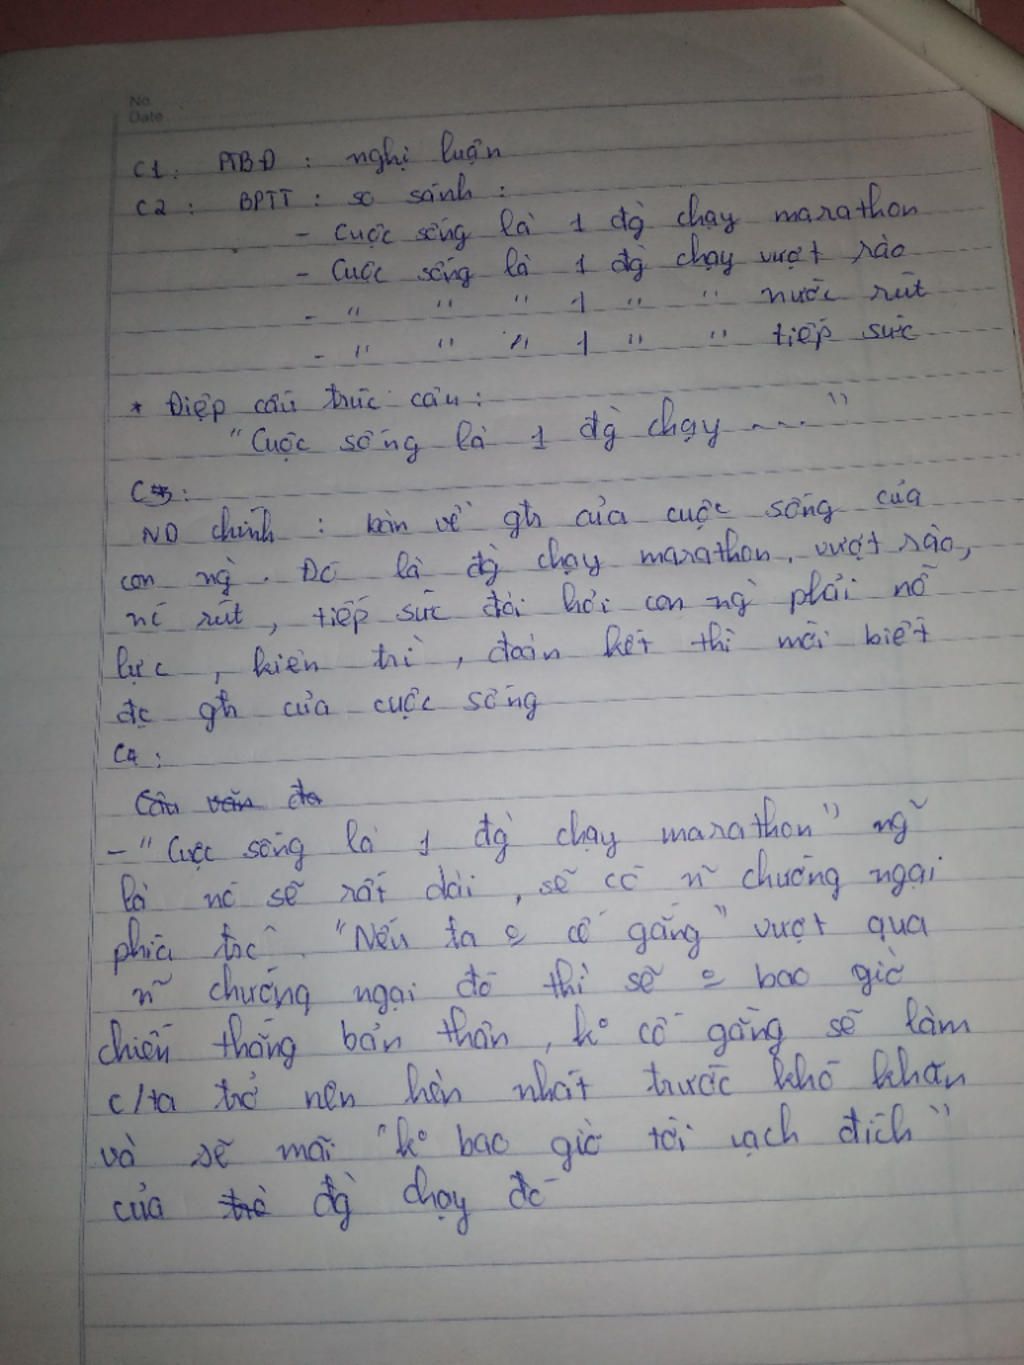 No
Date
C1: PTBĐ : nghị luận
C2 : BPTT : so sánh :
- Cuộc sống là 1 đg̀ chạy marathon
- Cuộc sống là 1 đg̀ chạy vượt rào
- " " " 1 " " nước rút
- " " " 1 " " tiếp sức
* Điệp cấu trúc câu :
"Cuộc sống là 1 đg̀ chạy ...."
C3:
ND chính : bàn về gtr của cuộc sống của
con ng̀ . Đó là đg̀ chạy marathon, vượt rào,
nc rút, tiếp sức đòi hỏi con ng̀ phải nỗ
lực , kiên trì , đoàn kết thì mới biết
đc gtr của cuộc sống
C4 :
Câu văn đa
- "Cuộc sống là 1 đg̀ chạy marathon" ng̃
là nó sẽ rất dài , sẽ có ñ chướng ngại
phía trc . "Nếu ta cố gắng" vượt qua
ñ chướng ngại đó thì sẽ bao giờ
chiến thắng bản thân , k° cố gắng sẽ làm
c/ta trở nên hèn nhát trước khó khăn
và sẽ mãi "k° bao giờ tới vạch đích"
của đg̀ chạy đó